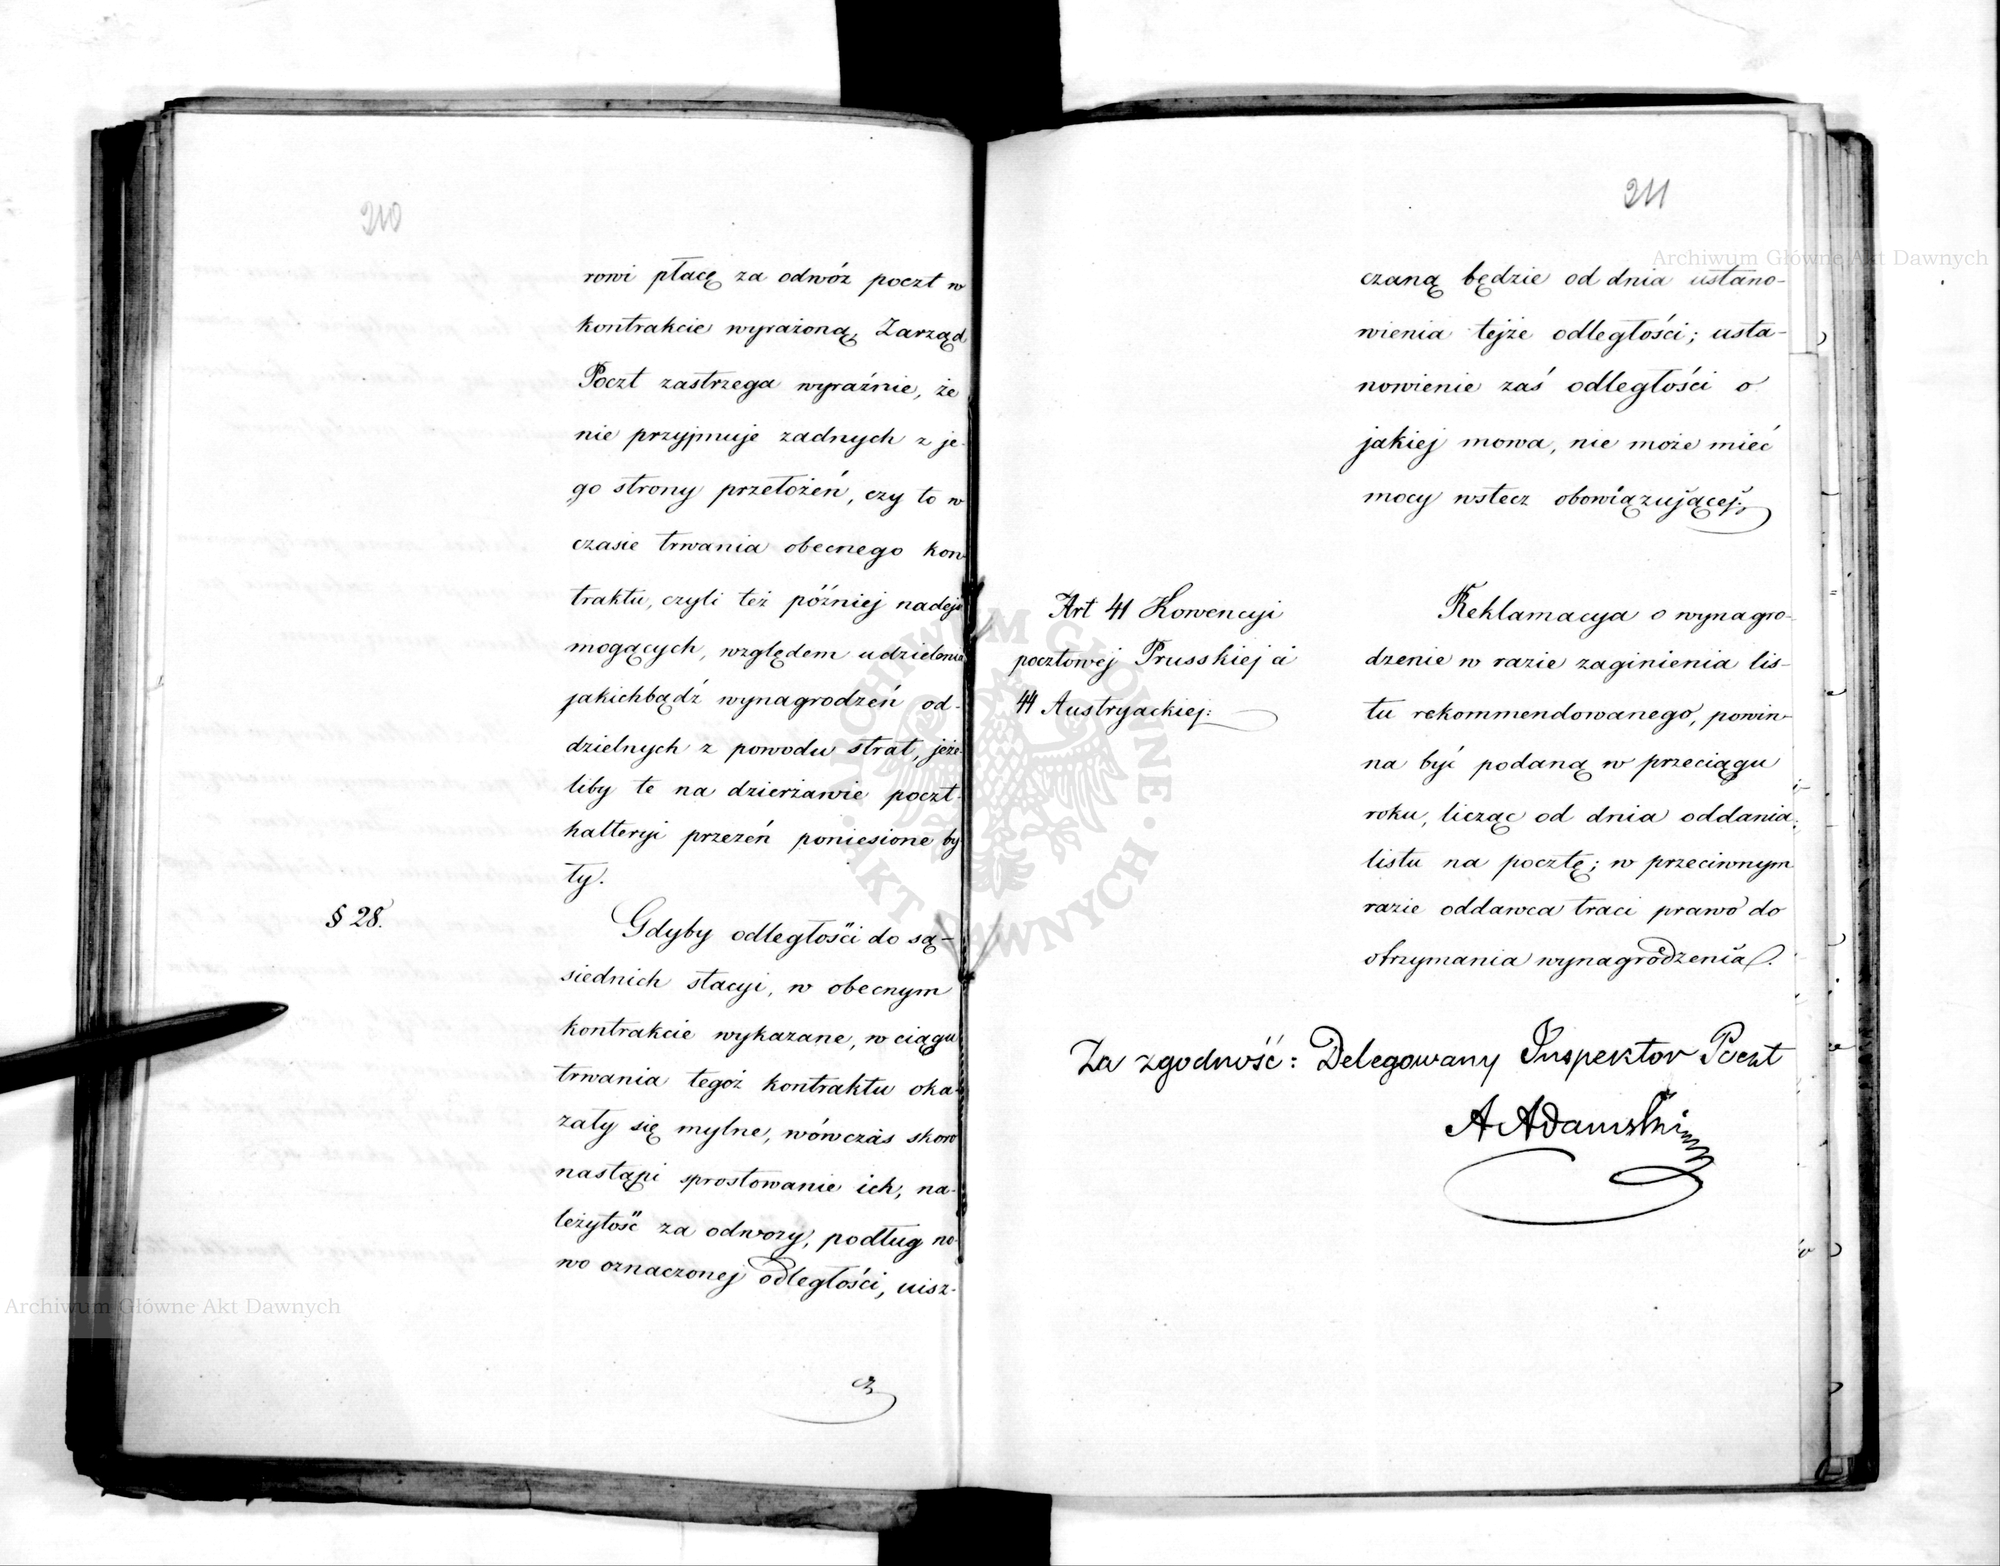 210
rowi płacę za odwóz poczt w
kontrakcie wyrażoną, Zarząd
Poczt zastrzega wyraźnie, że
nie przyjmuje zadnych z je-
go strony przełożeń, czy to w
czasie trwania obecnego kon-
traktu, czyli też później nadejść
mogących, względem udzielenia
jakichbądź wynagrodzeń od-
dzielnych z powodu strat, jeże-
liby te na dzierżawie poczt-
halteryi przezeń poniesione by
ły.
§ 28.
Gdyby odległości do są-
siednich stacyi, w obecnym
kontrakcie wykazane, w ciągu
trwania tegoż kontraktu oka-
zały się mylne, wówczas skoro
nastąpi sprostowanie ich, na-
leżytość za odwozy, podług no-
wo oznaczonej odległości, uisz-
cz
211
czaną będzie od dnia ustano-
wienia tejże odległości; usta-
nowienie zaś odległości o
jakiej mowa, nie może mieć
mocy wstecz obowiązującej.
Art 41 Kowencyi
pocztowej Prusskiej a
44 Austryackiej:
Reklamacya o wynagro-
dzenie w razie zaginienia lis-
tu rekommendowanego, powin-
na być podaną w przeciągu
roku, licząc od dnia oddania
listu na pocztę; w przeciwnym
razie oddawca traci prawo do
otrzymania wynagrodzenia.
Za zgodność: Delegowany Inspektor Poczt
A Adamski
Archiwum Główne Akt Dawnych
Archiwum Główne Akt Dawnych
ARCHIWUM GŁÓWNE AKT DAWNYCH